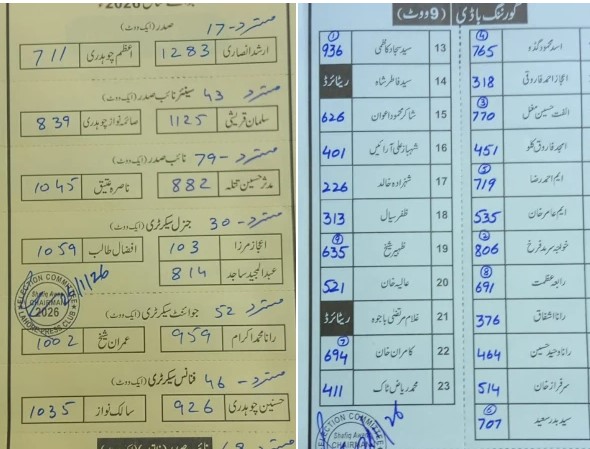 2026ء
صدر (ایک ووٹ) مسترد - 17
ارشد انصاری 1283 اعظم چوہدری 711
سینئر نائب صدر (ایک ووٹ) 43 مسترد
سلمان قریشی 1125 صائمہ نواز چوہدری 839
نائب صدر (ایک ووٹ) 79 - مسترد
مدثر حسین تتلہ 882 ناصرہ عتیق 1045
جنرل سیکرٹری (ایک ووٹ) 30 - مسترد
اعجاز مرزا 103 افضال طالب 1059
عبدالمجید ساجد 814
ELECTION COMMITTEE
CHAIRMAN
2026
LAHORE PRESS CLUB
جوائنٹ سیکرٹری (ایک ووٹ) 52 مسترد
رانا محمد اکرام 959 عمران شیخ 1002
فنانس سیکرٹری (ایک ووٹ) 46 - مسترد
حسنین چوہدری 926 سالک نواز 1035
گورننگ باڈی (9 ووٹ)
اسد محمود گڈو 765 ④
اعجاز احمد فاروقی 318
الفت حسین مغل 770 ③
امجد فاروق کلو 451
ایم احمد رضا 719
ایم عامر خان 535
خواجہ سرمد فرخ 806 ②
رابعہ عظمت 691 ⑧
رانا اشفاق 376
رانا وحید حسین 464
سرفراز خان 514
سید بدر سعید 707 ⑥
13 سید سجاد کاظمی 936 ①
14 سید فاطر شاہ ریٹائرڈ
15 شاکر محمود اعوان 626
16 شہباز علی آرائیں 401
17 شہزادہ خالد 226
18 ظفر سیال 313
19 ظہیر شیخ 635 ⑨
20 عالیہ خان 521
21 غلام مرتضیٰ باجوہ ریٹائرڈ
22 کامران خان 694 ⑦
23 محمد ریاض ٹاک 411
ELECTION COMMITTEE
Shafiq Awan
CHAIRMAN